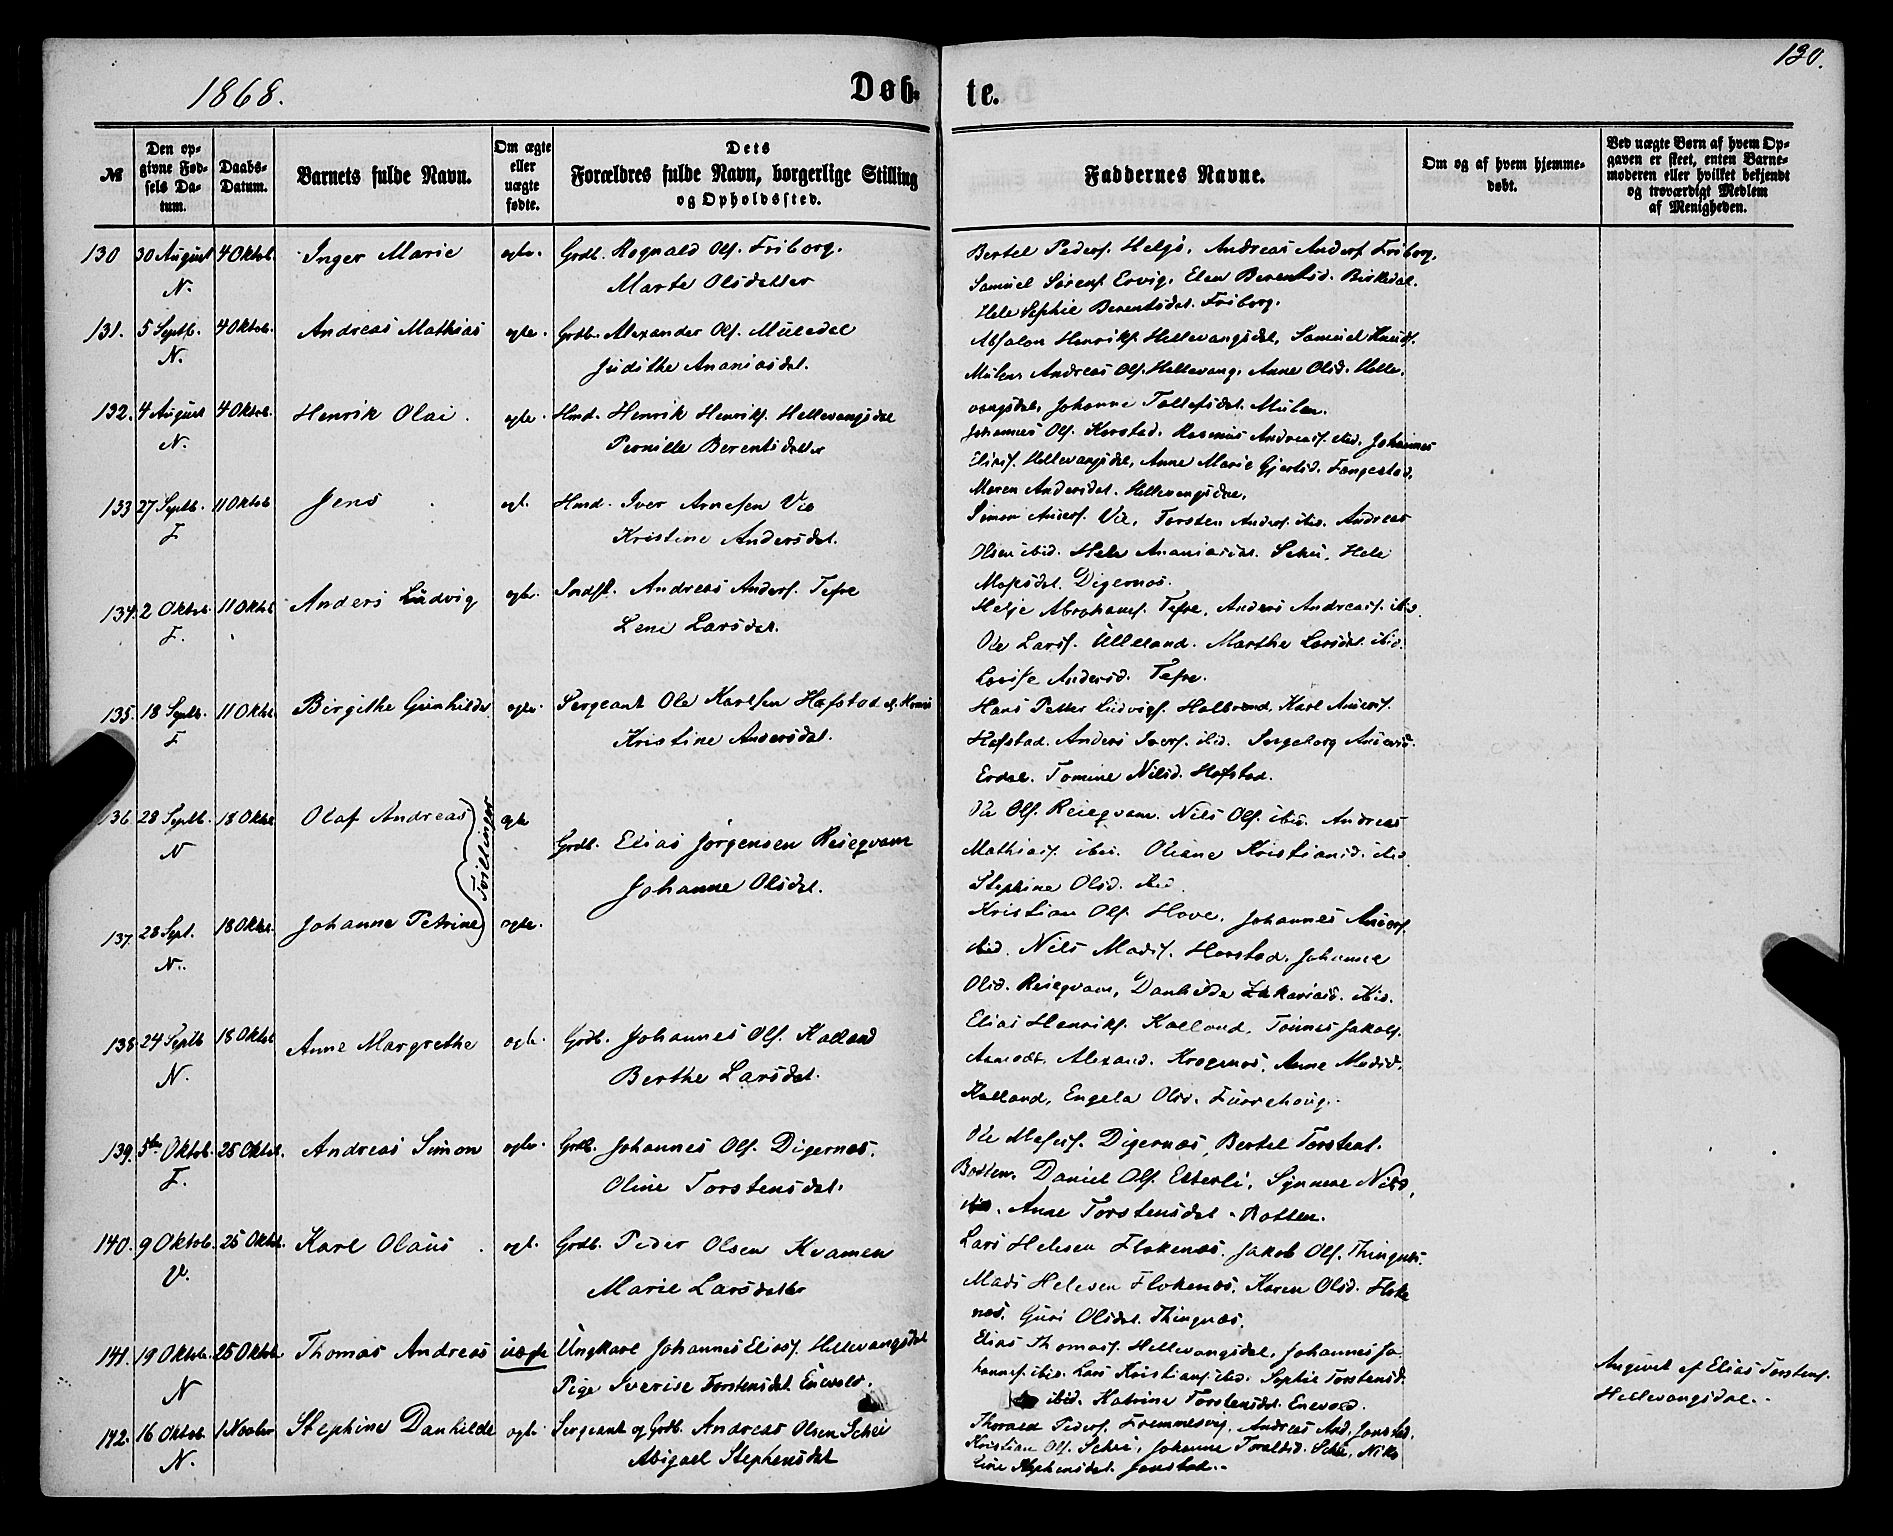 1868.
Døb-
te.
130.
№
Den op-
givne Fød-
sels Da-
tum.
Daabs-
Datum.
Barnets fulde Navn.
Om ægte
eller
uægte
fødte.
Dets
Forældres fulde Navn, borgerlige Stilling
og Opholdssted.
Faddernes Navne.
Om og af hvem hjemme-
døbt.
Ved uægte Børn af hvem Op-
gaven er skeet, enten Barne-
moderen eller hvilket bekjendt
og troværdigt Medlem
af Menigheden.
130 30 August 4 Oktob. Inger Marie ægte. Grdb. Rognald Ols. Friborg.
N. Marte Olsdatter
Bertel Peders. Andreas Anders. Friborg.
Samuel Sørens. Ervig, Elen Berentsd. Birkedal.
Sophie Berentsdat. Friborg.
131. 5 Septb. 4 Oktob. Andreas Mathias ægte. Grdb. Alexander Ols. Muledal
N. Judithe Ananiasdat.
Absalon Henriks. Hellevangsdal, Samuel Knuds.
Mulen Andreas Ols. Hellevang, Anne Olsd. Helle-
vangsdal, Johanne Tollefsdat. Mulen.
132. 4 August 4 Oktob. Henrik Olai. ægte. Hmd. Henrik Henriks. Hellevangsdal
N. Pernille Berentsdatter
Johannes Ols. Rasmus Andreas. ibid. Johannes
Elias. Hellevangsdal, Anne Marie Gjertsd.
Maren Andersdat. Hellevangsdal.
133 27 Septb. 11 Oktob Jens ægt. Hmd. Iver Arnesen Vie
F Kristine Andersdat.
Simon Anders. Vie, Torsten Anders. ibid. Andreas
Olsen ibid. Ananiasdat. Schei,
Digernæs.
134. 2 Oktob. 11 Oktob Anders Ludvig ægte. Andreas Anders. Tefre
F. Lene Larsdat.
Helje Abrahams. Tefre, Anders Andreas. ibid.
Ole Lars. Ulleland. Marthe Larsdat. ibid.
Lovise Andersd. Tefre.
135. 18 Septb. 11 Oktob. Birgithe Gunhilde ægte. Sergeant Ole Karlsen Hafstad
F Kristine Andersdat.
Hans Petter Ludvigs. Karl Anders.
Hafstad. Anders Ivers. ibid. Ingeborg Andersd.
Erdal. Tomine Nilsd. Hafstad.
136. 28 Septb. 18 Oktob Olaf Andreas ægte
N
Tvillinger
Grdb. Elias Jørgensen Reieqvam
Johanne Olsdat.
Ole Ols. Reieqvam. Nils Ols. ibid. Andreas
Mathias. ibid. Oliane Kristiansd. ibid
Stephine Olsd. ibid.
137. 28 Sept. 18 Oktob. Johanne Petrine ægte.
N.
Kristian Ols. Hove. Johannes Anders.
ibid. Nils Mads. Horstad. Johanne
Olsd. Reieqvam, Danhilde Zakariasd. ibid.
138 24 Septb 18 Oktob Anne Margrethe ægte. Grdb. Johannes Ols. Kalland
N. Berthe Larsdat.
Elias Henriks. Kalland, Tønnes Jakobs.
Alexand. Krogenæs, Anne Madsd.
Kalland, Engela Olsd. Furrehoug.
139. 5te Oktob. 25 Oktob. Andreas Simon ægte. Grdb. Johannes Ols. Digernæs.
F. Oline Torstensdat.
Digernæs, Bertel
Botten. Daniel Ols. Esterli, Synneve Nilsd.
ibid. Anne Torstensdat. Botten.
140. 9 Oktob. 25 Oktob. Karl Olaus. ægt. Grdb. Peder Olsen Kvamen
V. Marie Larsdatter
Lars Helesen Flokenæs. Jakob Ols. Thingnæs.
Mads Helesen Flokenæs. Karen Olsd. Floke
næs. Guri Olsdat. Thingnæs.
141. 19 Oktob. 25 Oktob Thomas Andreas uægte Ungkarl Johannes Elias. Hellevangsdal
N Pige Iverise Torstensdat. Enevold.
Elias Thomas. Hellevangsdal, Johannes Jo-
hannes. ibid. Lars Kristians. ibid. Sophie Torstensd.
ibid. Katrine Torstensdat. Enevold.
Angivet af Elias Torstens.
Hellevangsdal.
142. 16 Oktob. 1 Novbr Stephine Danhilde ægte. Sergeant og Grdb. Andreas Olsen Schei
N. Abigael Stephensdat
Thorald Peders. Andreas And. Jonstad.
Kristian Ols. Schei, Johanne Toraldsd. Schei, Niko
line Stephensdat. Jonstad.